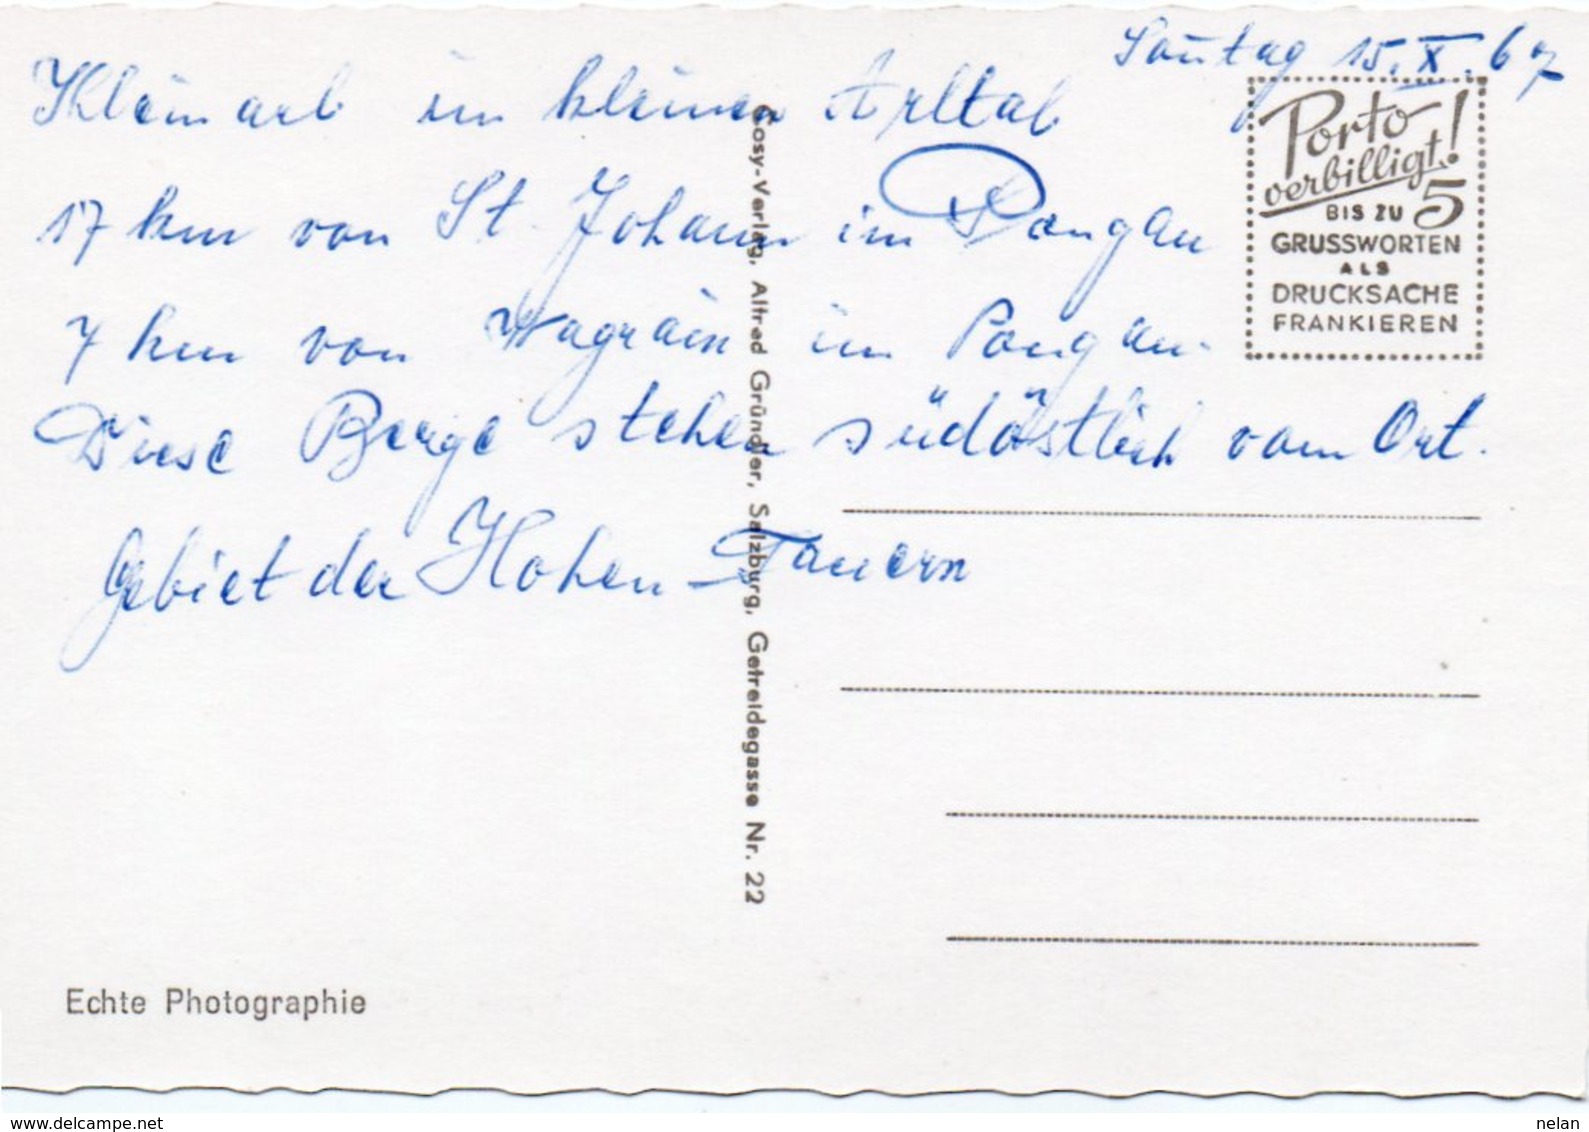 Sontag 15.X.67
Kleinarl im kleinen Arltal
17 km von St. Johann im Pongau
7 km von Wagrain im Pongau.
Diese Berge stehen südöstlich vom Ort.
Gebiet der Hohen-Tauern
Porto
verbilligt!
BIS ZU 5
GRUSSWORTEN
ALS
DRUCKSACHE
FRANKIEREN
Cosy-Verlag, Alfred Gründler, Salzburg, Getreidegasse Nr. 22
Echte Photographie
www.delcampe.net
nelan